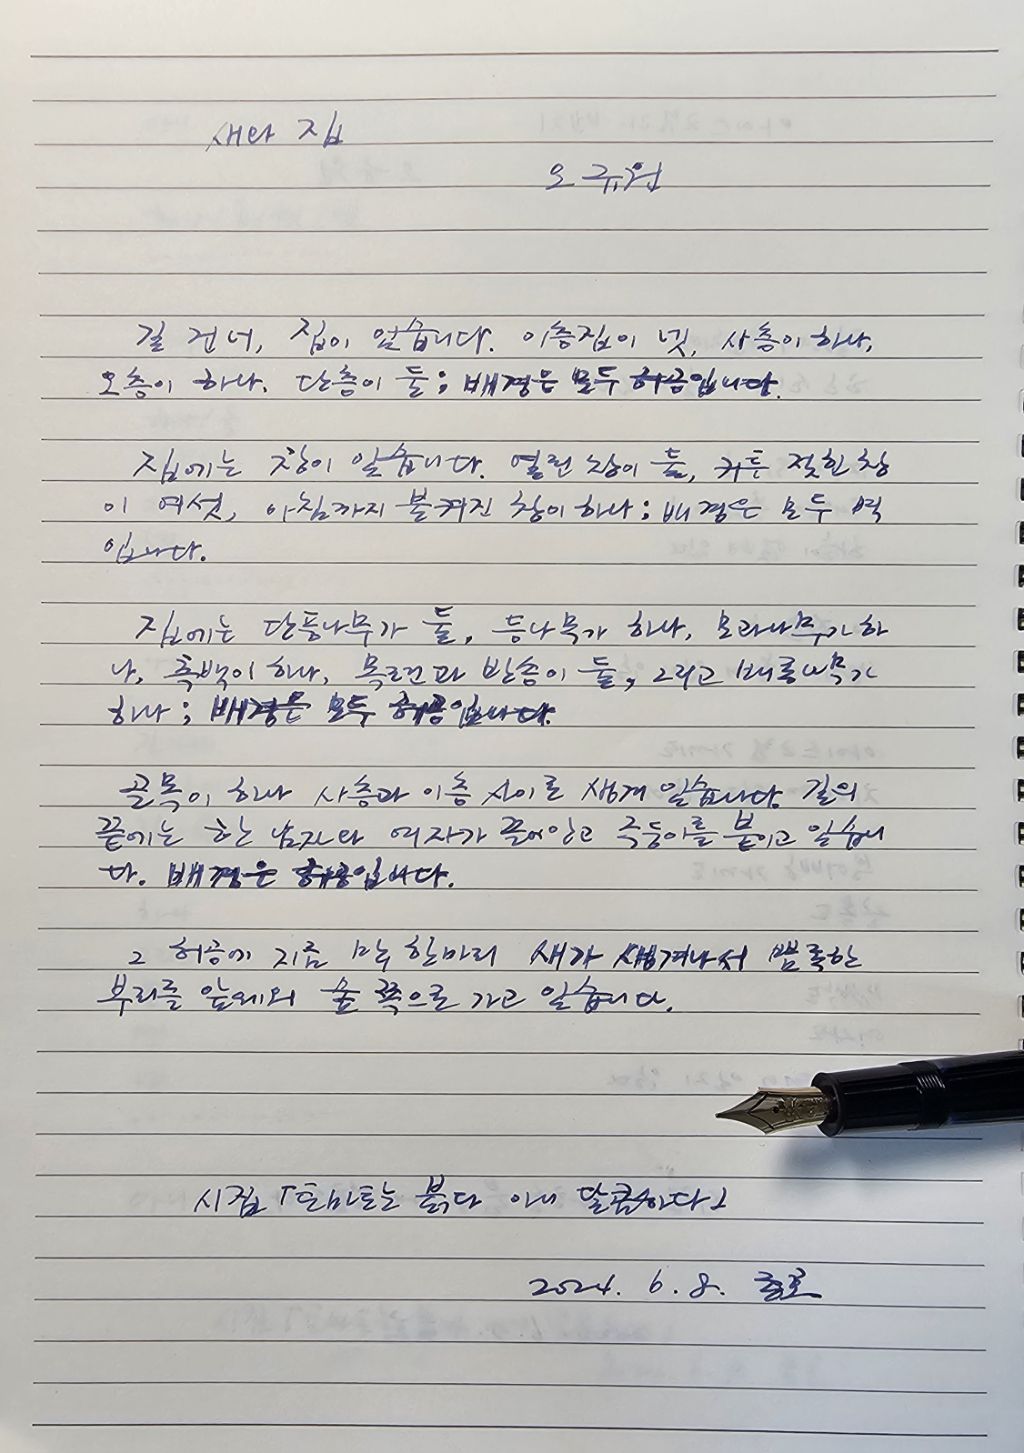 새와 집
오규원
길 건너, 집이 있습니다. 이층집이 넷, 사층이 하나,
오층이 하나. 단층이 둘; 배경은 모두 허공입니다.
집에는 창이 있습니다. 열린 창이 둘, 커튼 젖힌 창
이 여섯, 아침까지 불켜진 창이 하나; 배경은 모두 벽
입니다.
집에는 단풍나무가 둘, 등나무가 하나, 모과나무가 하
나, 측백이 하나, 목련과 반송이 둘, 그리고 배롱나무가
하나; 배경은 모두 허공입니다.
골목이 하나 사층과 이층 사이로 생겨 있습니다. 길의
끝에는 한 남자와 여자가 끌어안고 주둥이를 붙이고 있습니
다. 배경은 허공입니다.
그 허공에 지금 막 한마리 새가 생겨나서 뾰족한
부리를 앞세워 숲 쪽으로 가고 있습니다.
시집 「토마토는 붉다 아니 달콤하다」
2024. 6. 8.